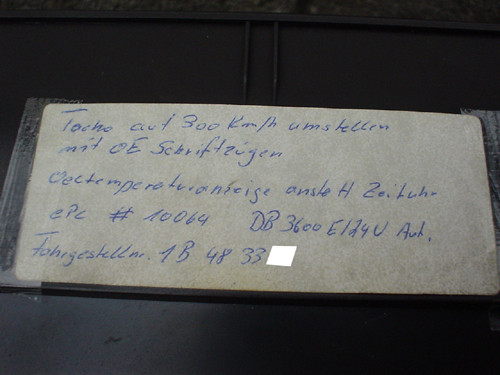 Tacho auf 300 Km/h umstellen
mit OE Schriftzügen
Oeltemperaturanzeige anstelle Zeituhr
EPC # 10064 DB 3600 E/24V Aut.
Fahrgestellnr. 1B 48 33